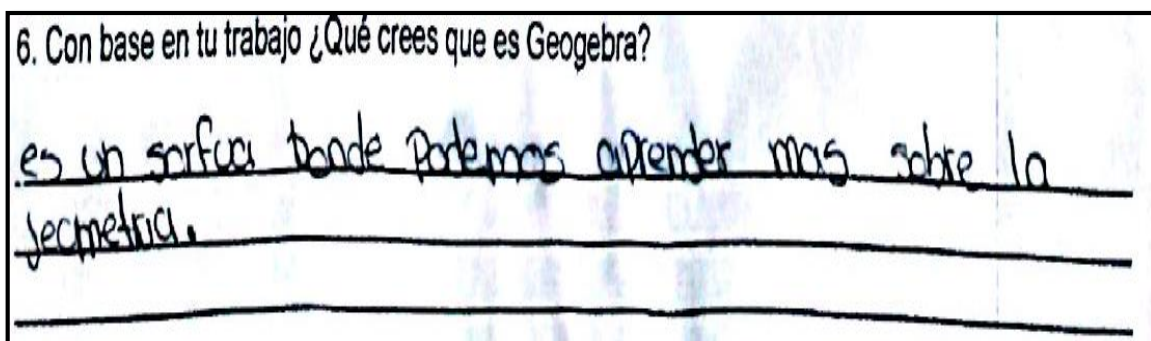 6. Con base en tu trabajo ¿Qué crees que es Geogebra?
es un sorfua donde Podemos aprender mas sobre la
jeometria.